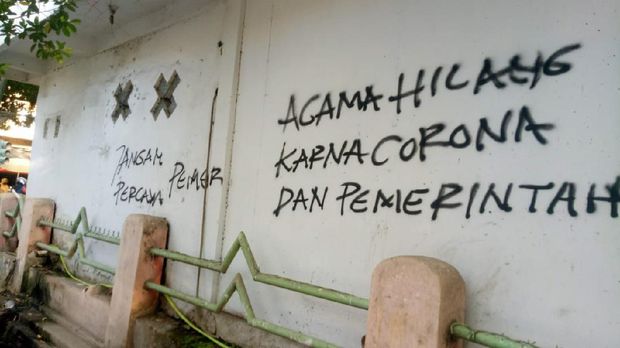 JANGAN
PERCAYA PEMER
AGAMA HILANG
KARNA CORONA
DAN PEMERINTAH